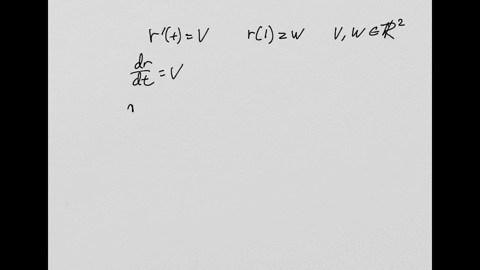 r'(t) = V r(1) = w V, W ∈ ℝ²
dr/dt = V